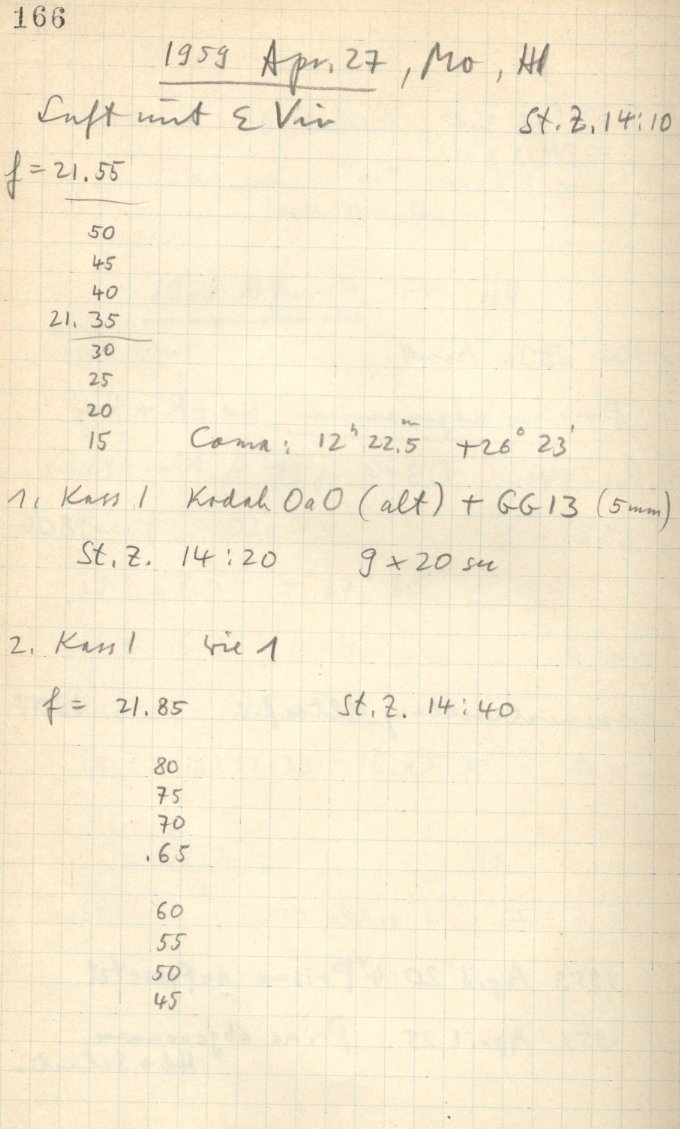 166
1959 Apr. 27, Mo, Hl
Luft mit ε Vir St. Z. 14:10
f = 21.55
50
45
40
21.35
30
25
20
15 Coma: 12ʰ 22.ᵐ5 +26° 23'
1. Kass 1 Kodak OaO (alt) + GG13 (5mm)
St. Z. 14:20 9 x 20 su
2. Kass 1 wie 1
f = 21.85 St. Z. 14:40
80
75
70
.65
60
55
50
45